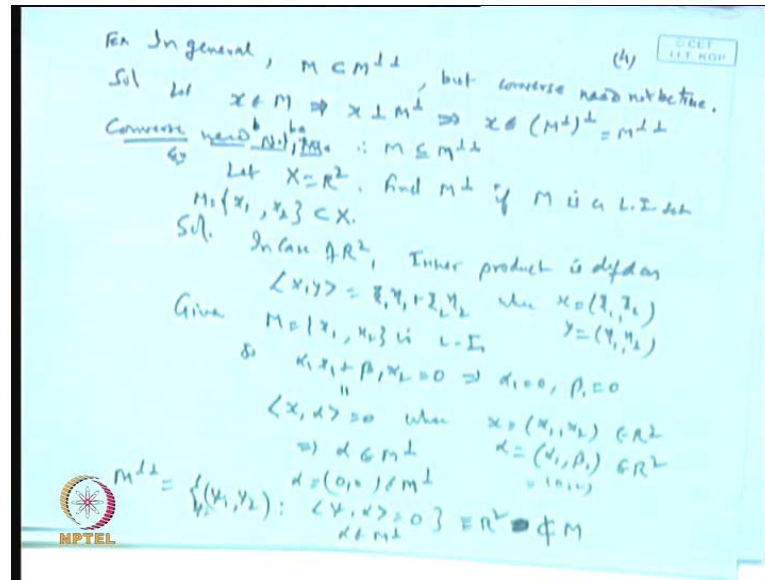 In general, M ⊂ M⊥⊥, but converse need not be true. (4)
© CET
I.I.T. KGP
Sol Let x ∈ M ⇒ x ⊥ M⊥ ⇒ x ∈ (M⊥)⊥ = M⊥⊥
Converse need Not be ∴ M ⊆ M⊥⊥
Let X = R². Find M⊥ if M is a L.I set
M = {x₁, x₂} ⊂ X.
Sol. In case of R², Inner product is
⟨x, y⟩ = ξ₁η₁ + ξ₂η₂ when x = (ξ₁, ξ₂)
y = (η₁, η₂)
Given M = {x₁, x₂} is L.I.
α₁x₁ + β₁x₂ = 0 ⇒ α₁ = 0, β₁ = 0
||
⟨x, α⟩ = 0 when x = (x₁, x₂) ∈ R²
⇒ α ∈ M⊥ α = (α₁, β₁) ∈ R²
α = (0,0) ∈ M⊥ = (0,0)
M⊥⊥ = {(y₁, y₂) : ⟨y, α⟩ = 0} = R² ⊄ M
α ∈ M⊥
NPTEL